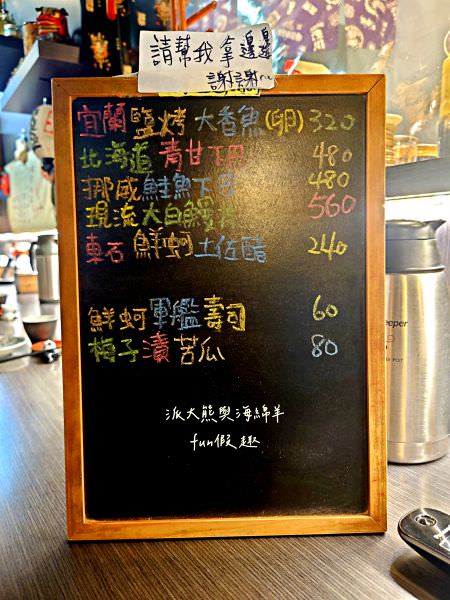 請幫我拿邊邊
謝謝~
宜蘭鹽烤大香魚(卵) 320
北海道青甘下巴 480
挪威鮭魚下巴 480
現流大白鰻 560
東石鮮蚵土佐醋 240
鮮蚵軍艦壽司 60
梅子漬苦瓜 80
派大熊與海綿羊
fun假趣